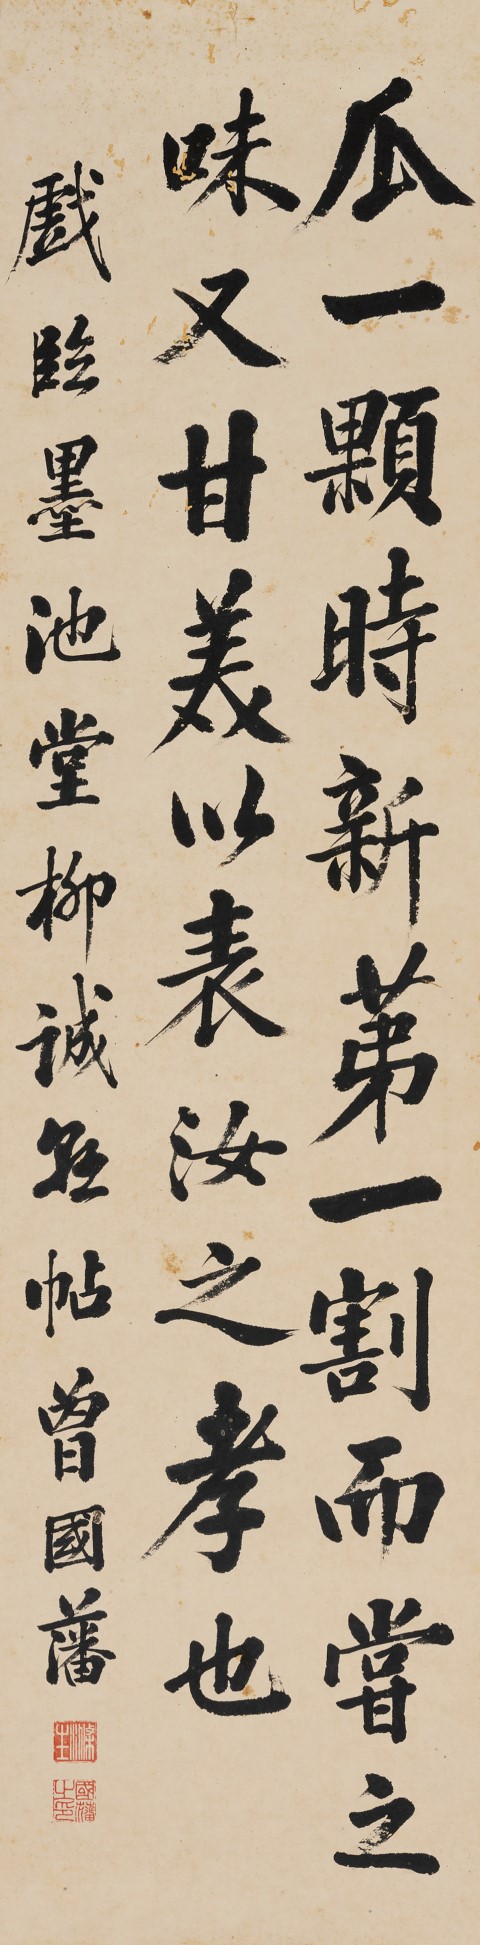 瓜一顆時新苐一割而嘗之
味又甘美以表汝之孝也
戲臨墨池堂柳誠懸帖曾國藩
滌生
國藩之印